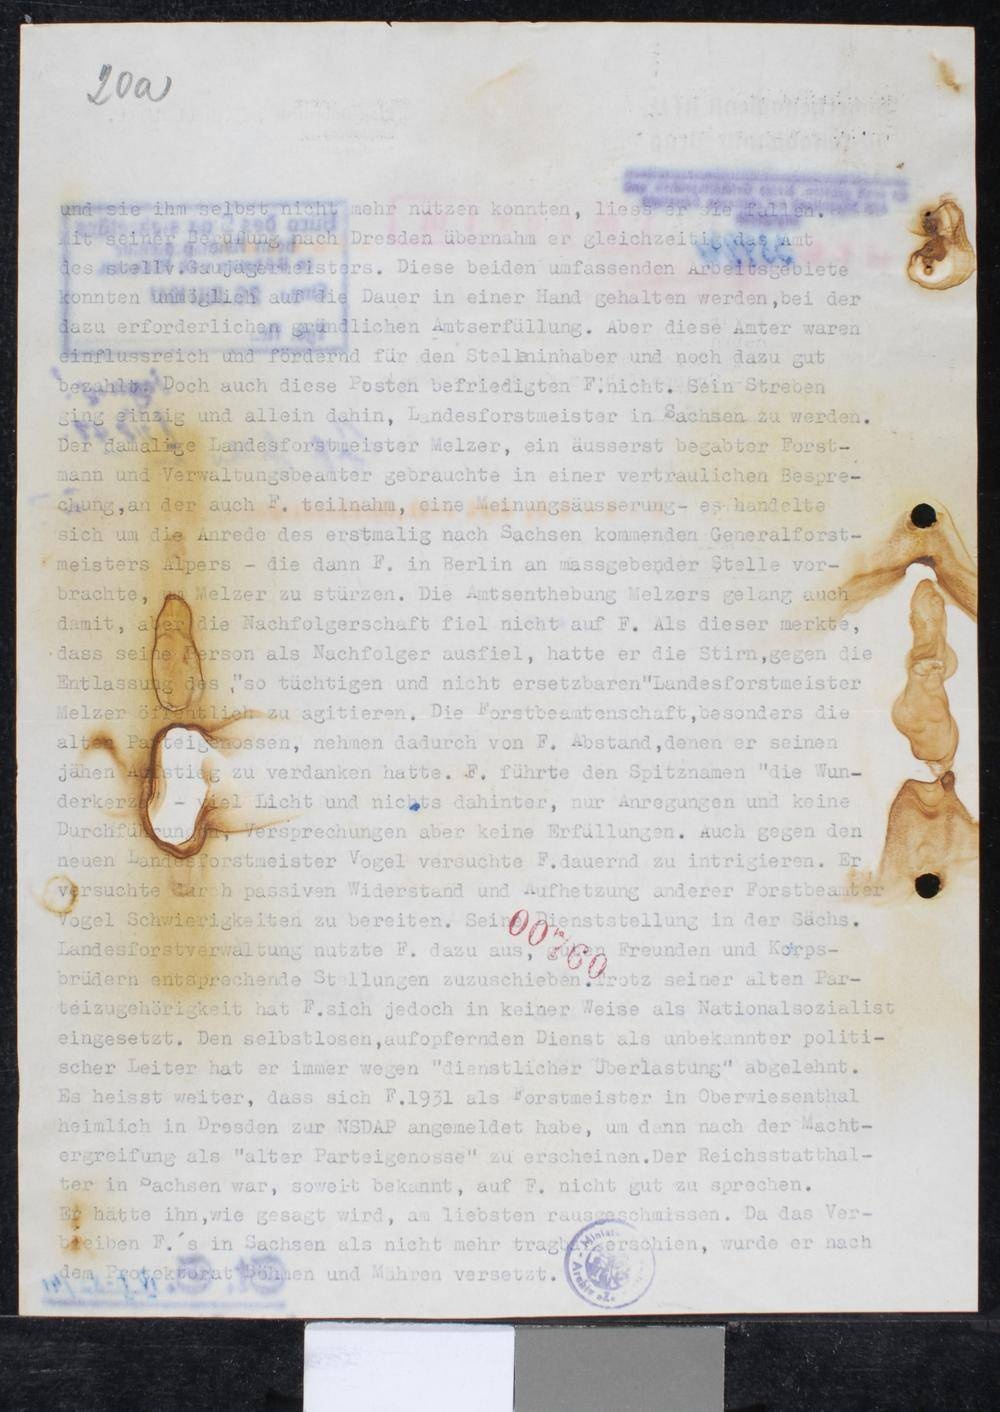 20a
und sie ihm selbst nicht mehr nützen konnten, liess er sie fallen.
Mit seiner Berufung nach Dresden übernahm er gleichzeitig das Amt
des stellv.Gaujägermeisters. Diese beiden umfassenden Arbeitsgebiete
konnten unmöglich auf die Dauer in einer Hand gehalten werden,bei der
dazu erforderlichen gründlichen Amtserfüllung. Aber diese Ämter waren
einflussreich und fördernd für den Stelleninhaber und noch dazu gut
bezahlt. Doch auch diese Posten befriedigten F.nicht. Sein Streben
ging einzig und allein dahin, Landesforstmeister in Sachsen zu werden.
Der damalige Landesforstmeister Melzer, ein äusserst begabter Forst-
mann und Verwaltungsbeamter gebrauchte in einer vertraulichen Bespre-
chung,an der auch F. teilnahm, eine Meinungsäusserung- es handelte
sich um die Anrede des erstmalig nach Sachsen kommenden Generalforst-
meisters Alpers - die dann F. in Berlin an massgebender Stelle vor-
brachte, um Melzer zu stürzen. Die Amtsenthebung Melzers gelang auch
damit, aber die Nachfolgerschaft fiel nicht auf F. Als dieser merkte,
dass seine Person als Nachfolger ausfiel, hatte er die Stirn,gegen die
Entlassung des "so tüchtigen und nicht ersetzbaren"Landesforstmeister
Melzer öffentlich zu agitieren. Die Forstbeamtenschaft,besonders die
alten Parteigenossen, nehmen dadurch von F. Abstand,denen er seinen
jähen Aufstieg zu verdanken hatte. F. führte den Spitznamen "die Wun-
derkerze - viel Licht und nichts dahinter, nur Anregungen und keine
Durchführungen, Versprechungen aber keine Erfüllungen. Auch gegen den
neuen Landesforstmeister Vogel versuchte F.dauernd zu intrigieren. Er
versuchte durch passiven Widerstand und Aufhetzung anderer Forstbeamter
Vogel Schwierigkeiten zu bereiten. Seine Dienststellung in der Sächs.
Landesforstverwaltung nutzte F. dazu aus, guten Freunden und Korps-
brüdern entsprechende Stellungen zuzuschieben.Trotz seiner alten Par-
teizugehörigkeit hat F.sich jedoch in keiner Weise als Nationalsozialist
eingesetzt. Den selbstlosen,aufopfernden Dienst als unbekannter politi-
scher Leiter hat er immer wegen "dienstlicher Überlastung" abgelehnt.
Es heisst weiter, dass sich F.1931 als Forstmeister in Oberwiesenthal
heimlich in Dresden zur NSDAP angemeldet habe, um dann nach der Macht-
ergreifung als "alter Parteigenosse" zu erscheinen.Der Reichsstatthal-
ter in Sachsen war, soweit bekannt, auf F. nicht gut zu sprechen.
Er hätte ihn,wie gesagt wird, am liebsten rausgeschmissen. Da das Ver-
bleiben F.´s in Sachsen als nicht mehr tragbar erschien, wurde er nach
dem Protektorat Böhmen und Mähren versetzt.